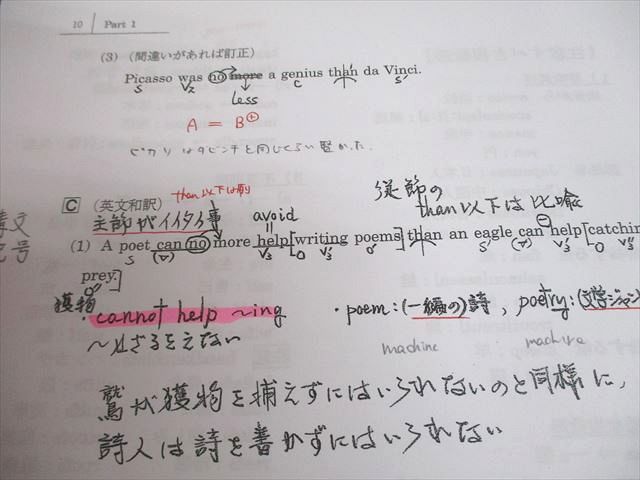 10 Part 1
(3) (間違いがあれば訂正)
Picasso was no more a genius than da Vinci.
S V₂ C S'
less
A = B⊕
ピカソはダビンチと同じくらい賢かった。
than以下は
従節の
C (英文和訳)
主節がイイタイ事
avoid
than以下は比喩
構文
記号
(1) A poet can no more help [writing poems] than an eagle can help [catching
S (v) V₃ O V₃' O' S' (v) V₃' O V₃'
prey.]
O'
獲物
・cannot help ~ing
・poem:(一編の)詩, poetry:(文学ジャンル
~せざるをえない
machine
鷲が獲物を捕えずにはいられないのと同様に,
詩人は詩を書かずにはいられない